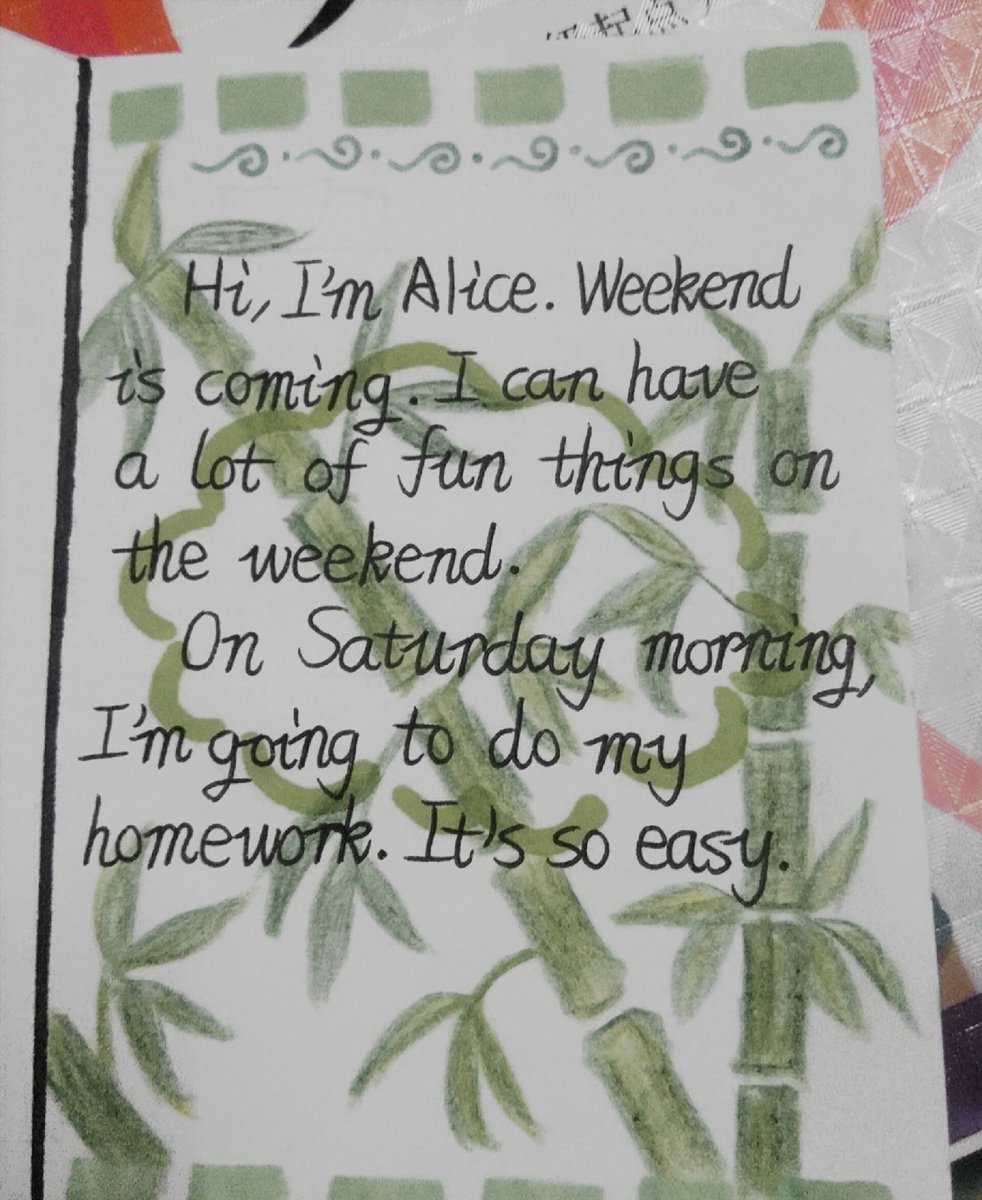 Hi, I'm Alice. Weekend
is coming. I can have
a lot of fun things on
the weekend.
On Saturday morning,
I'm going to do my
homework. It's so easy.